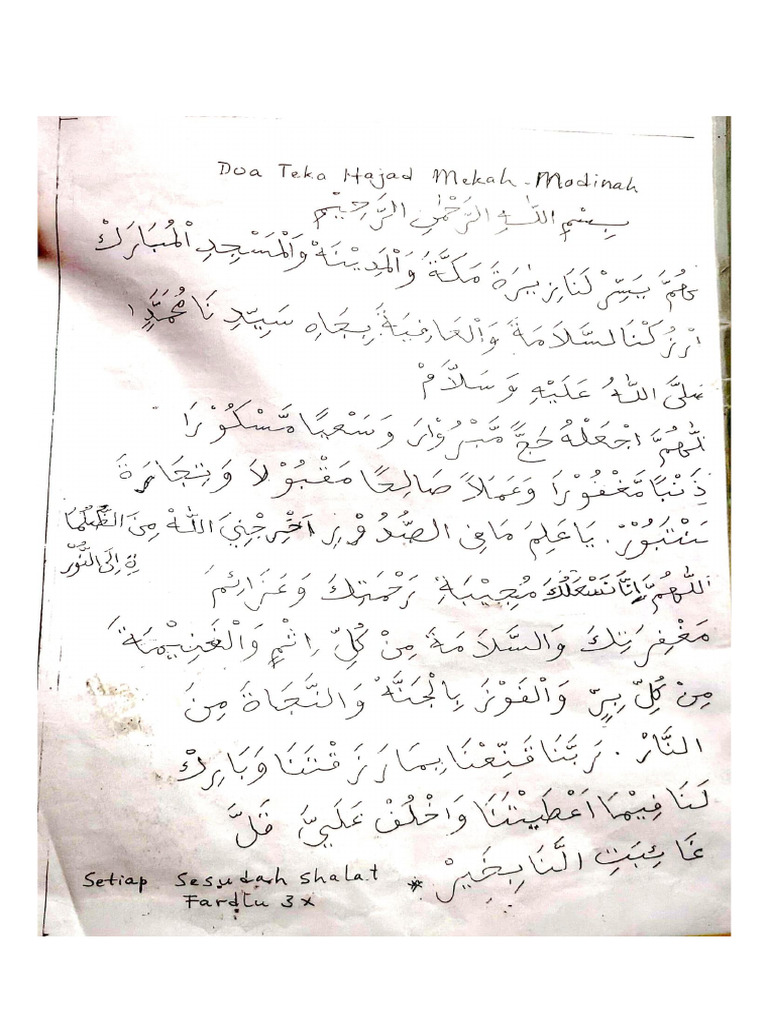 Doa Teka Hajad Mekah - Modinah
بِسْمِ اللهِ الرَّحْمٰنِ الرَّحِيْمِ
هُمَّ يَسِّرْ لَنَا زِيَرَةَ مَكَّةَ وَالْمَدِيْنَةْ وَالْمَسْجِدِ الْمُبَارَكْ
ارْزُكْنَالسَّلَامَةَ وَالْعَافِيَةَ بِجَاهِ سَيِّدِ نَا مُحَمَّدٍ
صَلَّى اللهُ عَلَيْهِ وَسَلَّامْ
لّٰهُمَّ اجْعَلْهُ حَجًّ مَّبْرُوْارَ وَسَعْيًا مَّسْكُوْرَا
ذَنْبًا مَّغْفُوْرَا وَعَمَلاً صَالِحًا مَقْبُوْلاَ وَتِجَارَةَ
نْتَبُوْرْ. يَا عَلِمَ مَا فِى الصُّدُوْرِ اَخْرِجْنِيَ اللهْ مِنَ الظُّلُمَا
تِ اِلَى النُّوْر
اللّٰهُمَّ اِنَّا نَسْعَلُكَ مُجِيْبَةِ رَحْمَتِكَ وَعَزَائِمَ
مَغْفِرَتِكَ وَالسَّلَامَةَ مِنْ كُلِّ اِثْمٍ وَالْغَنِيْمَةَ
مِنْ كُلِّ بِرٍّ وَالْفَوْزَ بِالْجَنَّةْ وَالنَّجَاةَ مِنَ
النَّارْ. رَبَّنَا قَنِّعْنَا بِمَا رَزَقْتَنَا وَبَارِكْ
لَنَا فِيْمَا اَعْطَيْتَنَا وَاخْلُفْ عَلَىيَّ قَلَّ
غَائِبَتِ الَّنَا بِخَيْرْ *
Setiap Sesudah Shalat
Fardlu 3x